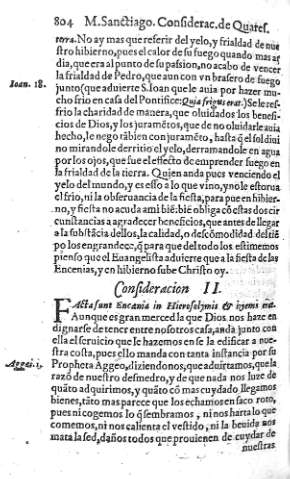 804 M. Sanctiago. Considerac. de Quares.
terra. No ay mas que referir del yelo, y frialdad de nue
stro hibierno, pues el calor de su fuego quando mas ar
dia, que era al punto de su passion, no acabo de vencer
la frialdad de Pedro, que aun con vn brasero de fuego
Ioan. 18.
junto (que aduierte S. Ioan que le auia por hazer mu-
cho frio en casa del Pontifice: Quia frigus erat.) Se le res-
frio la charidad de manera, que oluidados los benefi-
cios de Dios, y los juramētos, que de no oluidarle auia
hecho, le nego tābien con juramēto, hasta q̃ el sol diui
no mirandole derritio el yelo, derramandole en agua
por los ojos, que fue el effecto de emprender fuego en
la frialdad de la tierra. Quien anda pues venciendo el
yelo del mundo, y es esso a lo que vino, y no le estorua
el frio, ni la obseruancia de la fiesta, para que en hibier-
no, y fiesta no acuda a mi biē: biē obliga cō estas dos cir
cunstancias a agradecer beneficios, que antes de llegar
a la substācia dellos, la calidad, o descōmodidad del tiē
po los engrandece, q̃ para que del todo los estimemos
pienso que el Euangelista aduierte que a la fiesta de las
Encenias, y en hibierno sube Christo oy.
Consideracion II.
Facta sunt Encænia in Hierosolymis & hyems erat.
Aunque es gran merced la que Dios nos haze en
dignarse de tener entre nosotros casa, anda junto con
ella el seruicio que le hazemos en se la edificar a nue-
stra costa, pues ello manda con tanta instancia por su
Aggei. 1.
Propheta Aggeo, diziendonos, que aduirtamos, que la
razō de nuestro desmedro, y de que nada nos luze de
quāto adquirimos, y quāto cō mas cuydado llegamos
bienes, tāto mas parece que los echamos en saco roto,
pues ni cogemos lo q̃ sembramos, ni nos harta lo que
comemos, ni nos calienta el vestido, ni la beuida nos
mata la sed, daños todos que prouienen de cuydar de
nuestras